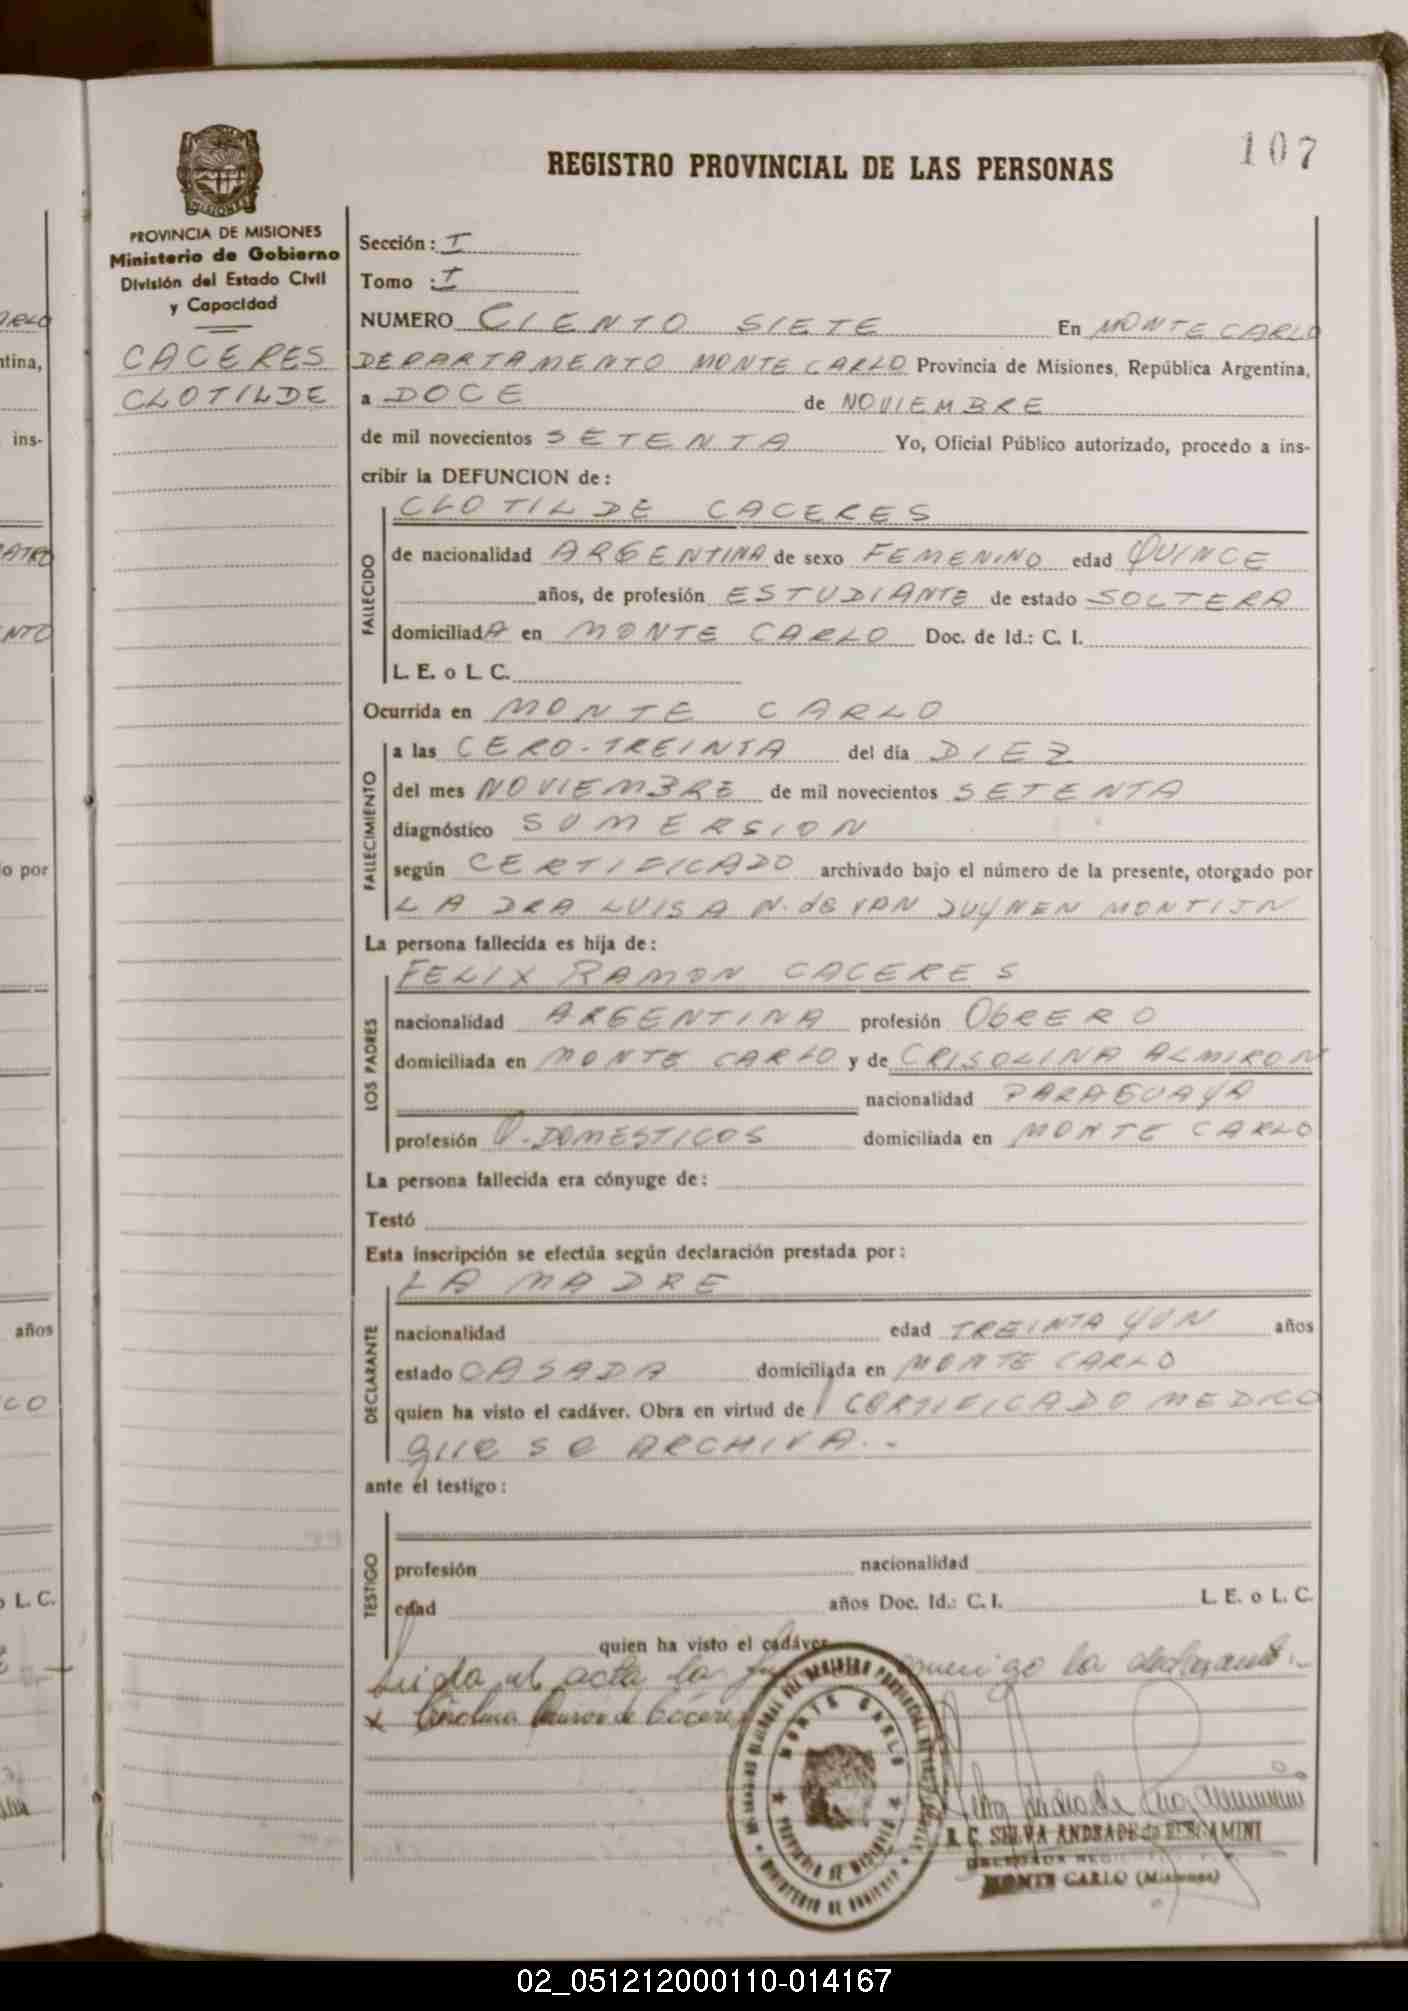 107
REGISTRO PROVINCIAL DE LAS PERSONAS
MISIONES
PROVINCIA DE MISIONES
Ministerio de Gobierno
División del Estado Civil
y Capacidad
CACERES
CLOTILDE
Sección: I
Tomo : I
NUMERO CIENTO SIETE En MONTECARLO
DEPARTAMENTO MONTE CARLO Provincia de Misiones, República Argentina,
a DOCE de NOVIEMBRE
de mil novecientos SETENTA Yo, Oficial Público autorizado, procedo a ins-
cribir la DEFUNCION de:
CLOTILDE CACERES
FALLECIDO
de nacionalidad ARGENTINA de sexo FEMENINO edad QUINCE
años, de profesión ESTUDIANTE de estado SOLTERA
domiciliadA en MONTE CARLO Doc. de Id.: C. I.
L. E. o L. C.
Ocurrida en MONTE CARLO
FALLECIMIENTO
a las CERO-TREINTA del día DIEZ
del mes NOVIEMBRE de mil novecientos SETENTA
diagnóstico SUMERSION
según CERTIFICADO archivado bajo el número de la presente, otorgado por
LA DRA LUISA N. de VAN DUYNEN MONTIJN
La persona fallecida es hija de:
FELIX RAMON CACERES
LOS PADRES
nacionalidad ARGENTINA profesión OBRERO
domiciliada en MONTE CARLO y de CRISOLINA ALMIRON
nacionalidad PARAGUAYA
profesión Q. DOMESTICOS domiciliada en MONTE CARLO
La persona fallecida era cónyuge de:
Testó
Esta inscripción se efectúa según declaración prestada por:
LA MADRE
DECLARANTE
nacionalidad edad TREINTA Y UN años
estado CASADA domiciliada en MONTE CARLO
quien ha visto el cadáver. Obra en virtud de CERTIFICADO MEDICO
que se ARCHIVA..
ante el testigo:
TESTIGO
profesión nacionalidad
edad años Doc. Id.: C. I. L. E. o L. C.
quien ha visto el cadáver
Leida el acta la conmigo la declarante.
x de Cáceres
MONTE CARLO
PROVINCIA DE MISIONES
MINISTERIO DE GOBIERNO
SILVA ANDRADE de BERGAMINI
MONTE CARLO (Misiones)
ARLO
ntina,
ins-
ATRO
ENTO
do por
años
ICO
o L. C.
02_051212000110-014167